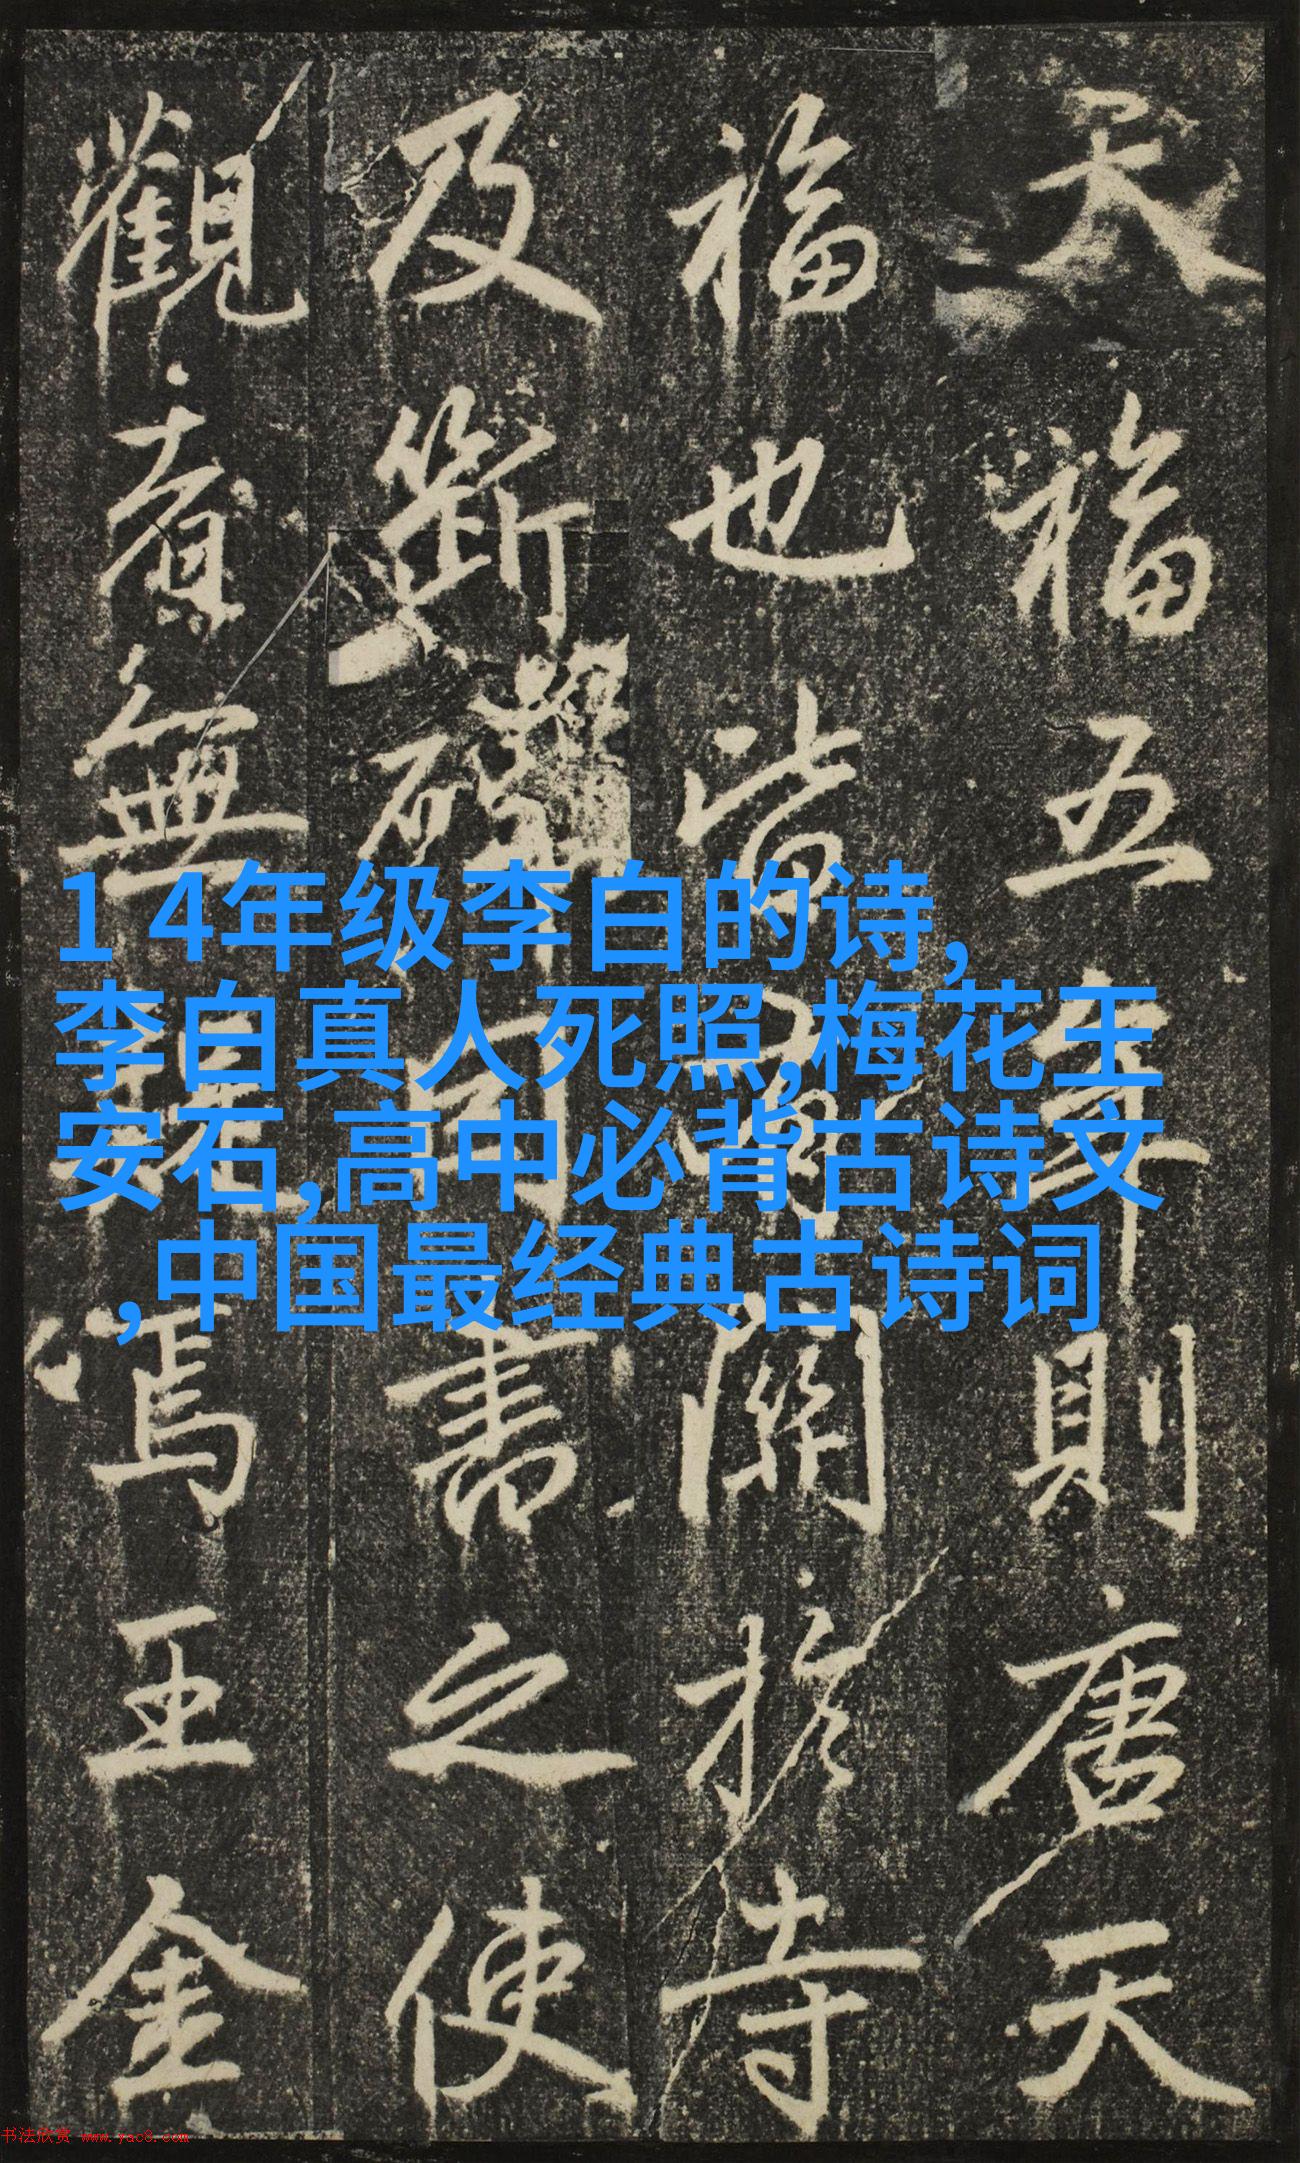 1 4年级李白的诗,
李白真人死照,梅花王
安石,高中必背古诗文
,中国最经典古诗词
天福五年則唐天
福也皆關於寺
及斷碑可書之使
觀者無焉王金
书法欣赏 www.yac8.com